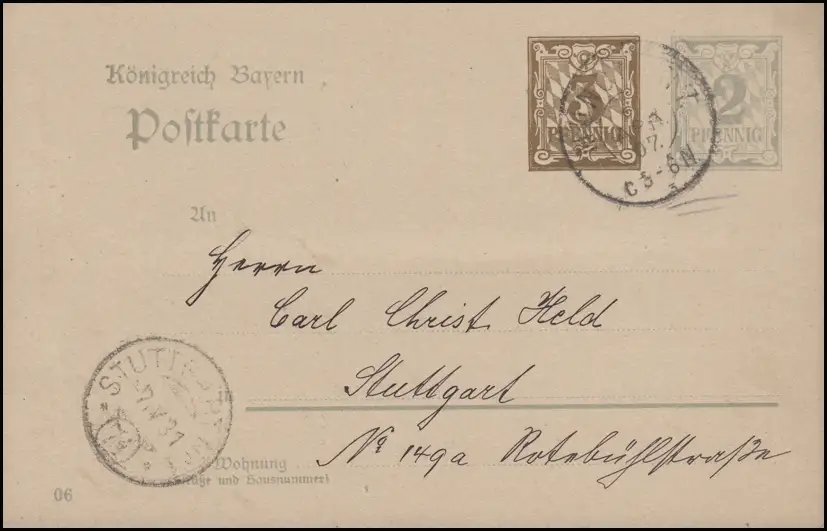 Königreich Bayern
Postkarte
3
PFENNIG
2
PFENNIG
07.
C 5-6N
An
Herrn
Carl Christ. Held
Stuttgart
No 149a Rotebühlstraße
STUTTGART
Wohnung
(Straße und Hausnummer)
06